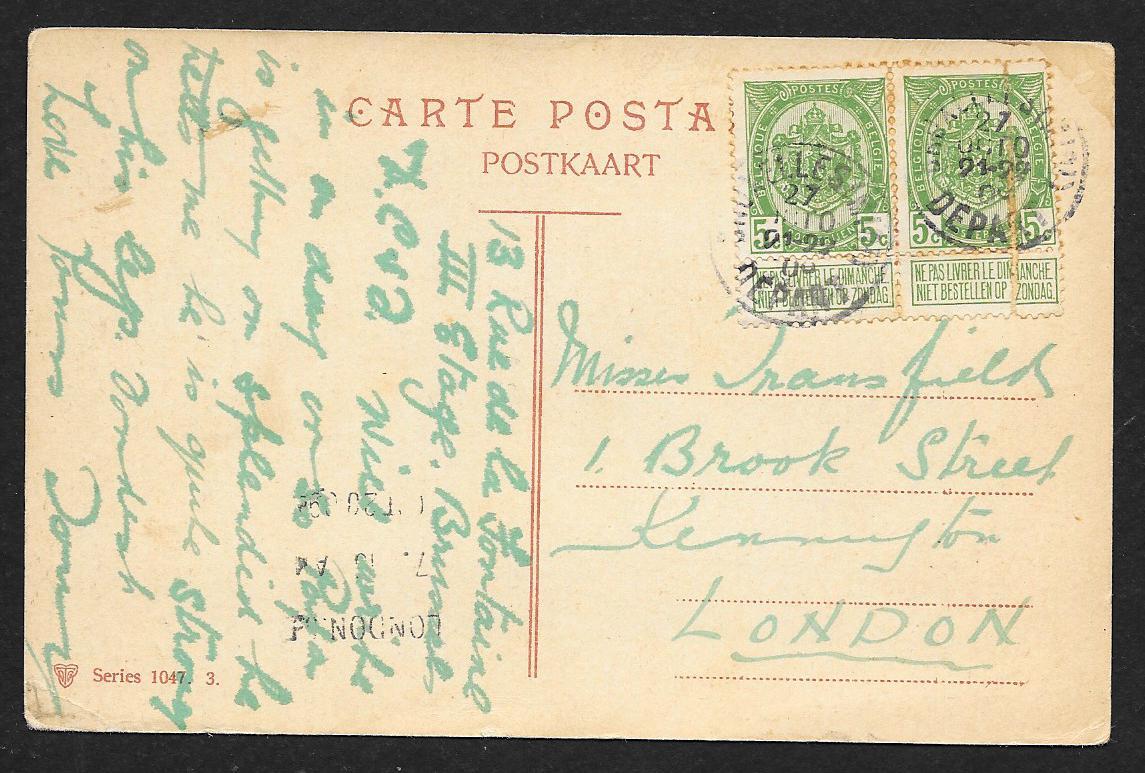 CARTE POSTA
POSTKAART
POSTES
BELGIQUE BELGIË
5c 5c
NE PAS LIVRER LE DIMANCHE
NIET BESTELLEN OP ZONDAG
POSTES
BELGIQUE BELGIË
5c 5c
NE PAS LIVRER LE DIMANCHE.
NIET BESTELLEN OP ZONDAG.
27
OCTO
DEPART
27
DEPART
Misses Transfield
1. Brook Street
Kennington
LONDON
13 Rue de la Fontaine
III Etage. Bruxelles
Will write
in a day or so Papa
is getting on splendid he
tells me he is quite strong
Love
Tommy
LONDON
7. AM
Series 1047. 3.